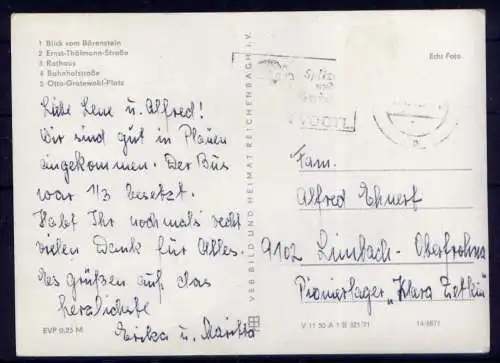 1 Blick vom Bärenstein
2 Ernst-Thälmann-Straße
3 Rathaus
4 Bahnhofstraße
5 Otto-Grotewohl-Platz
Liebe Lene u. Alfred!
Wir sind gut in Plauen
angekommen. Der Bus
war 1/3 besetzt.
Habt Ihr nochmals recht
vielen Dank für Alles.
Es grüßen auf das
herzlichste
Erika u. Maritta
EVP 0,25 M
VEB BILD UND HEIMAT REICHENBACH I. V.
Echt Foto
Fam.
Alfred Ehnert
9102 Limbach-Oberfrohna
Pionierlager „Klara Zetkin"
V 11 50 A 1 B 321/71
14-5871